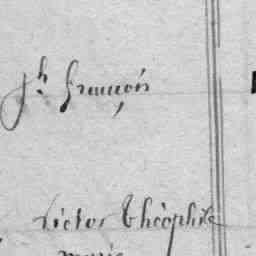 Jh. François
Victor Théophile
Marie